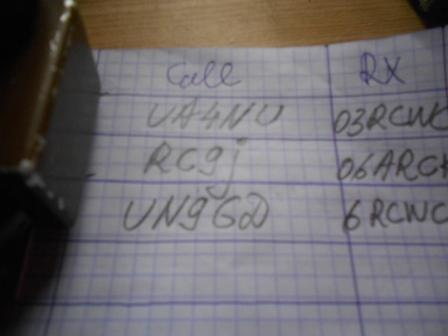 Call RX
UA4NU 03RCWC
RC9J 06ARCK
UN9GD 6RCWC